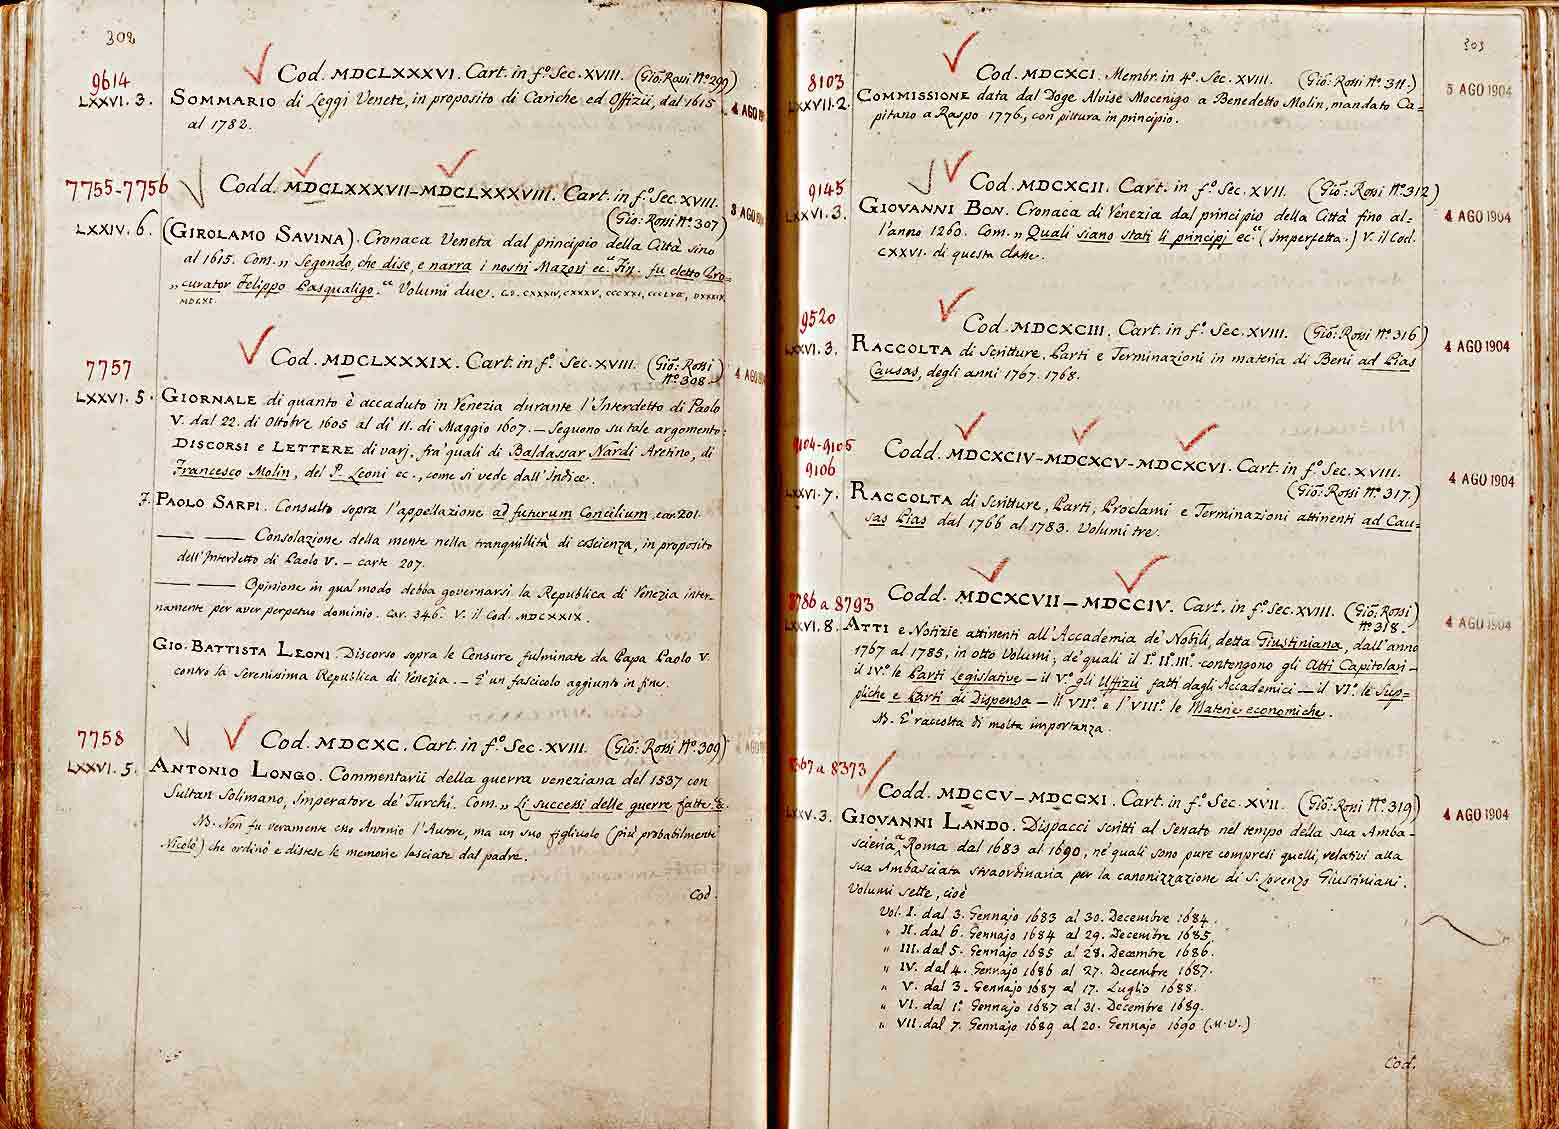 302
9614
LXXVI. 3.
Cod. MDCLXXXVI. Cart. in f.º Sec. XVIII. (Gio: Rossi Nº 299)
SOMMARIO di Leggi Venete, in proposito di Cariche ed Offizii, dal 1615
al 1782.
4 AGO 19
7755-7756
LXXIV. 6.
Codd. MDCLXXXVII-MDCLXXXVIII. Cart. in f.º Sec. XVIII.
(Gio: Rossi Nº 307)
(GIROLAMO SAVINA). Cronaca Veneta dal principio della Città sino
al 1615. Com. „ Segondo, che dise, e narra i nostri Mazori ec.“ Fin. fu eletto Pro=
„ curator Felippo Pasqualigo.“ Volumi due. CXXXIV, CXXXV, CCCXXI, DXXXIX
MDCXI.
3 AGO
7757
LXXVI. 5.
Cod. MDCLXXXIX. Cart. in f.º Sec. XVIII. (Gio: Rossi
Nº 308.
4 AGO
GIORNALE di quanto è accaduto in Venezia durante l'Interdetto di Paolo
V. dal 22. di Ottobre 1605 al dì 11. di Maggio 1607. — Seguono su tale argomento:
DISCORSI e LETTERE di varj, fra' quali di Baldassar Nardi Aretino, di
Francesco Molin, del P. Leoni ec., come si vede dall'Indice.
7. PAOLO SARPI. Consulto sopra l'appellazione ad futurum Concilium car. 201.
—— —— Consolazione della mente nella tranquillità di coscienza, in proposito
dell'Interdetto di Paolo V. — carte 207.
—— —— Opinione in qual modo debba governarsi la Repubblica di Venezia inter-
namente per aver perpetuo dominio. Car. 346. V. il Cod. MDCXXIX.
GIO. BATTISTA LEONI. Discorso sopra le Censure fulminate da Papa Paolo V.
contro la Serenissima Republica di Venezia. — È un fascicolo aggiunto in fine.
7758
LXXVI. 5.
Cod. MDCXC. Cart. in f.º Sec. XVIII. (Gio: Rossi Nº 309)
ANTONIO LONGO. Commentarii della guerra veneziana del 1537 con
Sultan Solimano, Imperatore de' Turchi. Com. „ Li successi delle guerre fatte &.
NB. Non fu veramente esso Antonio l'Autore, ma un suo figliuolo (più probabilmente
Nicolò) che ordinò e distese le memorie lasciate dal padre.
Cod.
303
8103
LXXVII. 2.
Cod. MDCXCI. Membr. in 4º. Sec. XVIII. (Gio: Rossi Nº 311.)
COMMISSIONE data dal Doge Alvise Mocenigo a Benedetto Molin, mandato Ca=
pitano a Raspo 1776, con pittura in principio.
5 AGO 1904
9145
LXXVI. 3.
Cod. MDCXCII. Cart. in f.º Sec. XVII. (Gio: Rossi Nº 312)
GIOVANNI BON. Cronaca di Venezia dal principio della Città fino al=
l'anno 1260. Com. „ Quali siano stati li principj ec.“ (Imperfetta.) V. il Cod.
CXXVI. di questa classe.
4 AGO 1904
9520
LXXVI. 3.
Cod. MDCXCIII. Cart. in f.º Sec. XVIII. (Gio: Rossi Nº 316)
RACCOLTA di Scritture, Parti e Terminazioni in materia di Beni ad Pias
Causas, degli anni 1767. 1768.
4 AGO 1904
9104-9105
9106
LXXVI. 7.
Codd. MDCXCIV-MDCXCV-MDCXCVI. Cart. in f.º Sec. XVIII.
(Gio: Rossi Nº 317.)
RACCOLTA di Scritture, Parti, Proclami e Terminazioni attinenti ad Cau=
sas Pias dal 1766 al 1783. Volumi tre.
4 AGO 1904
8786 a 8793
LXXVI. 8.
Codd. MDCXCVII — MDCCIV. Cart. in f.º Sec. XVIII. (Gio: Rossi
Nº 318.
ATTI e Notizie attinenti all'Accademia de' Nobili, detta Giustiniana, dall'anno
1767 al 1785, in otto Volumi; de' quali il Iº. IIº. IIIº. contengono gli Atti Capitolari —
il IVº. le Parti Legislative — il Vº. gli Uffizii fatti dagli Accademici — il VIº. le Sup=
pliche e Parti di Dispensa — il VIIº. e l'VIIIº. le Materie economiche.
NB. È raccolta di molta importanza.
4 AGO 1904
8367 a 8373
LXXV. 3.
Codd. MDCCV — MDCCXI. Cart. in f.º Sec. XVII. (Gio: Rossi Nº 319)
GIOVANNI LANDO. Dispacci scritti al Senato nel tempo della sua Amba-
scieria a Roma dal 1683 al 1690, ne' quali sono pure compresi quelli, relativi alla
sua Ambasciata straordinaria per la canonizzazione di S. Lorenzo Giustiniani.
Volumi sette, cioè
4 AGO 1904
Vol. I. dal 3. Gennajo 1683 al 30. Decembre 1684.
„ II. dal 6. Gennajo 1684 al 29. Decembre 1685.
„ III. dal 5. Gennajo 1685 al 28. Decembre 1686.
„ IV. dal 4. Gennajo 1686 al 27. Decembre 1687.
„ V. dal 3. Gennajo 1687 al 17. Luglio 1688.
„ VI. dal 1º. Gennajo 1687 al 31. Decembre 1689.
„ VII. dal 7. Gennajo 1689 al 20. Gennajo 1690 (M.V.)
Cod.